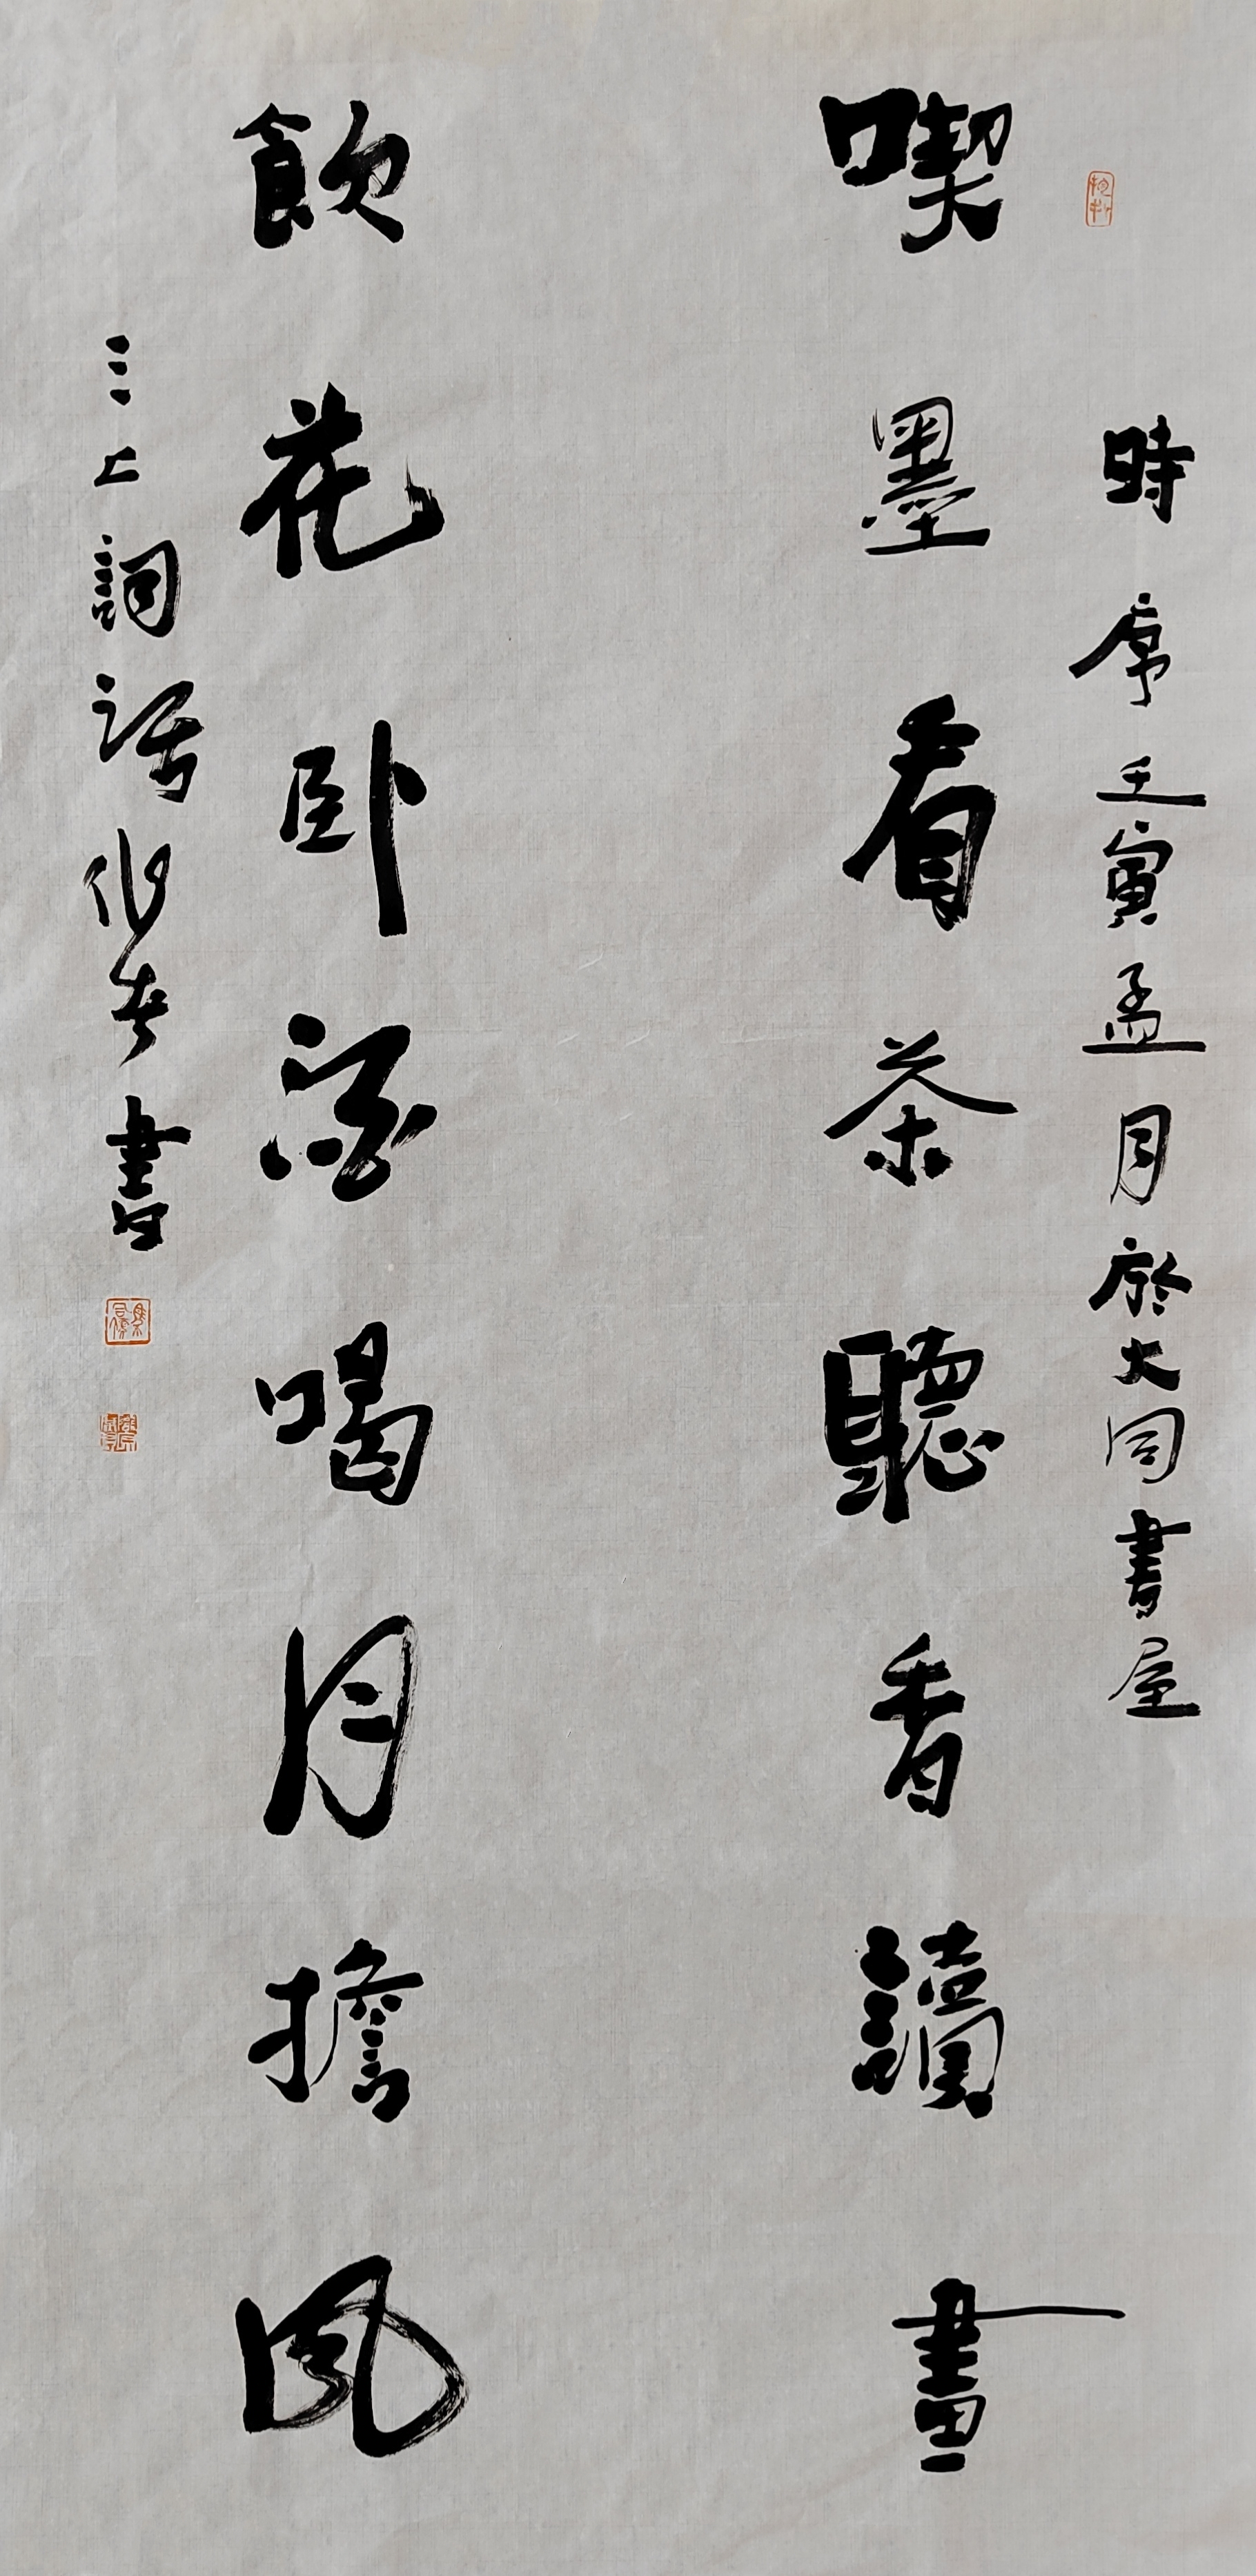 時序壬寅孟月於大同書屋
喫墨看茶聽香讀畫
飲花臥酒喝月擔風
三上詞話
書